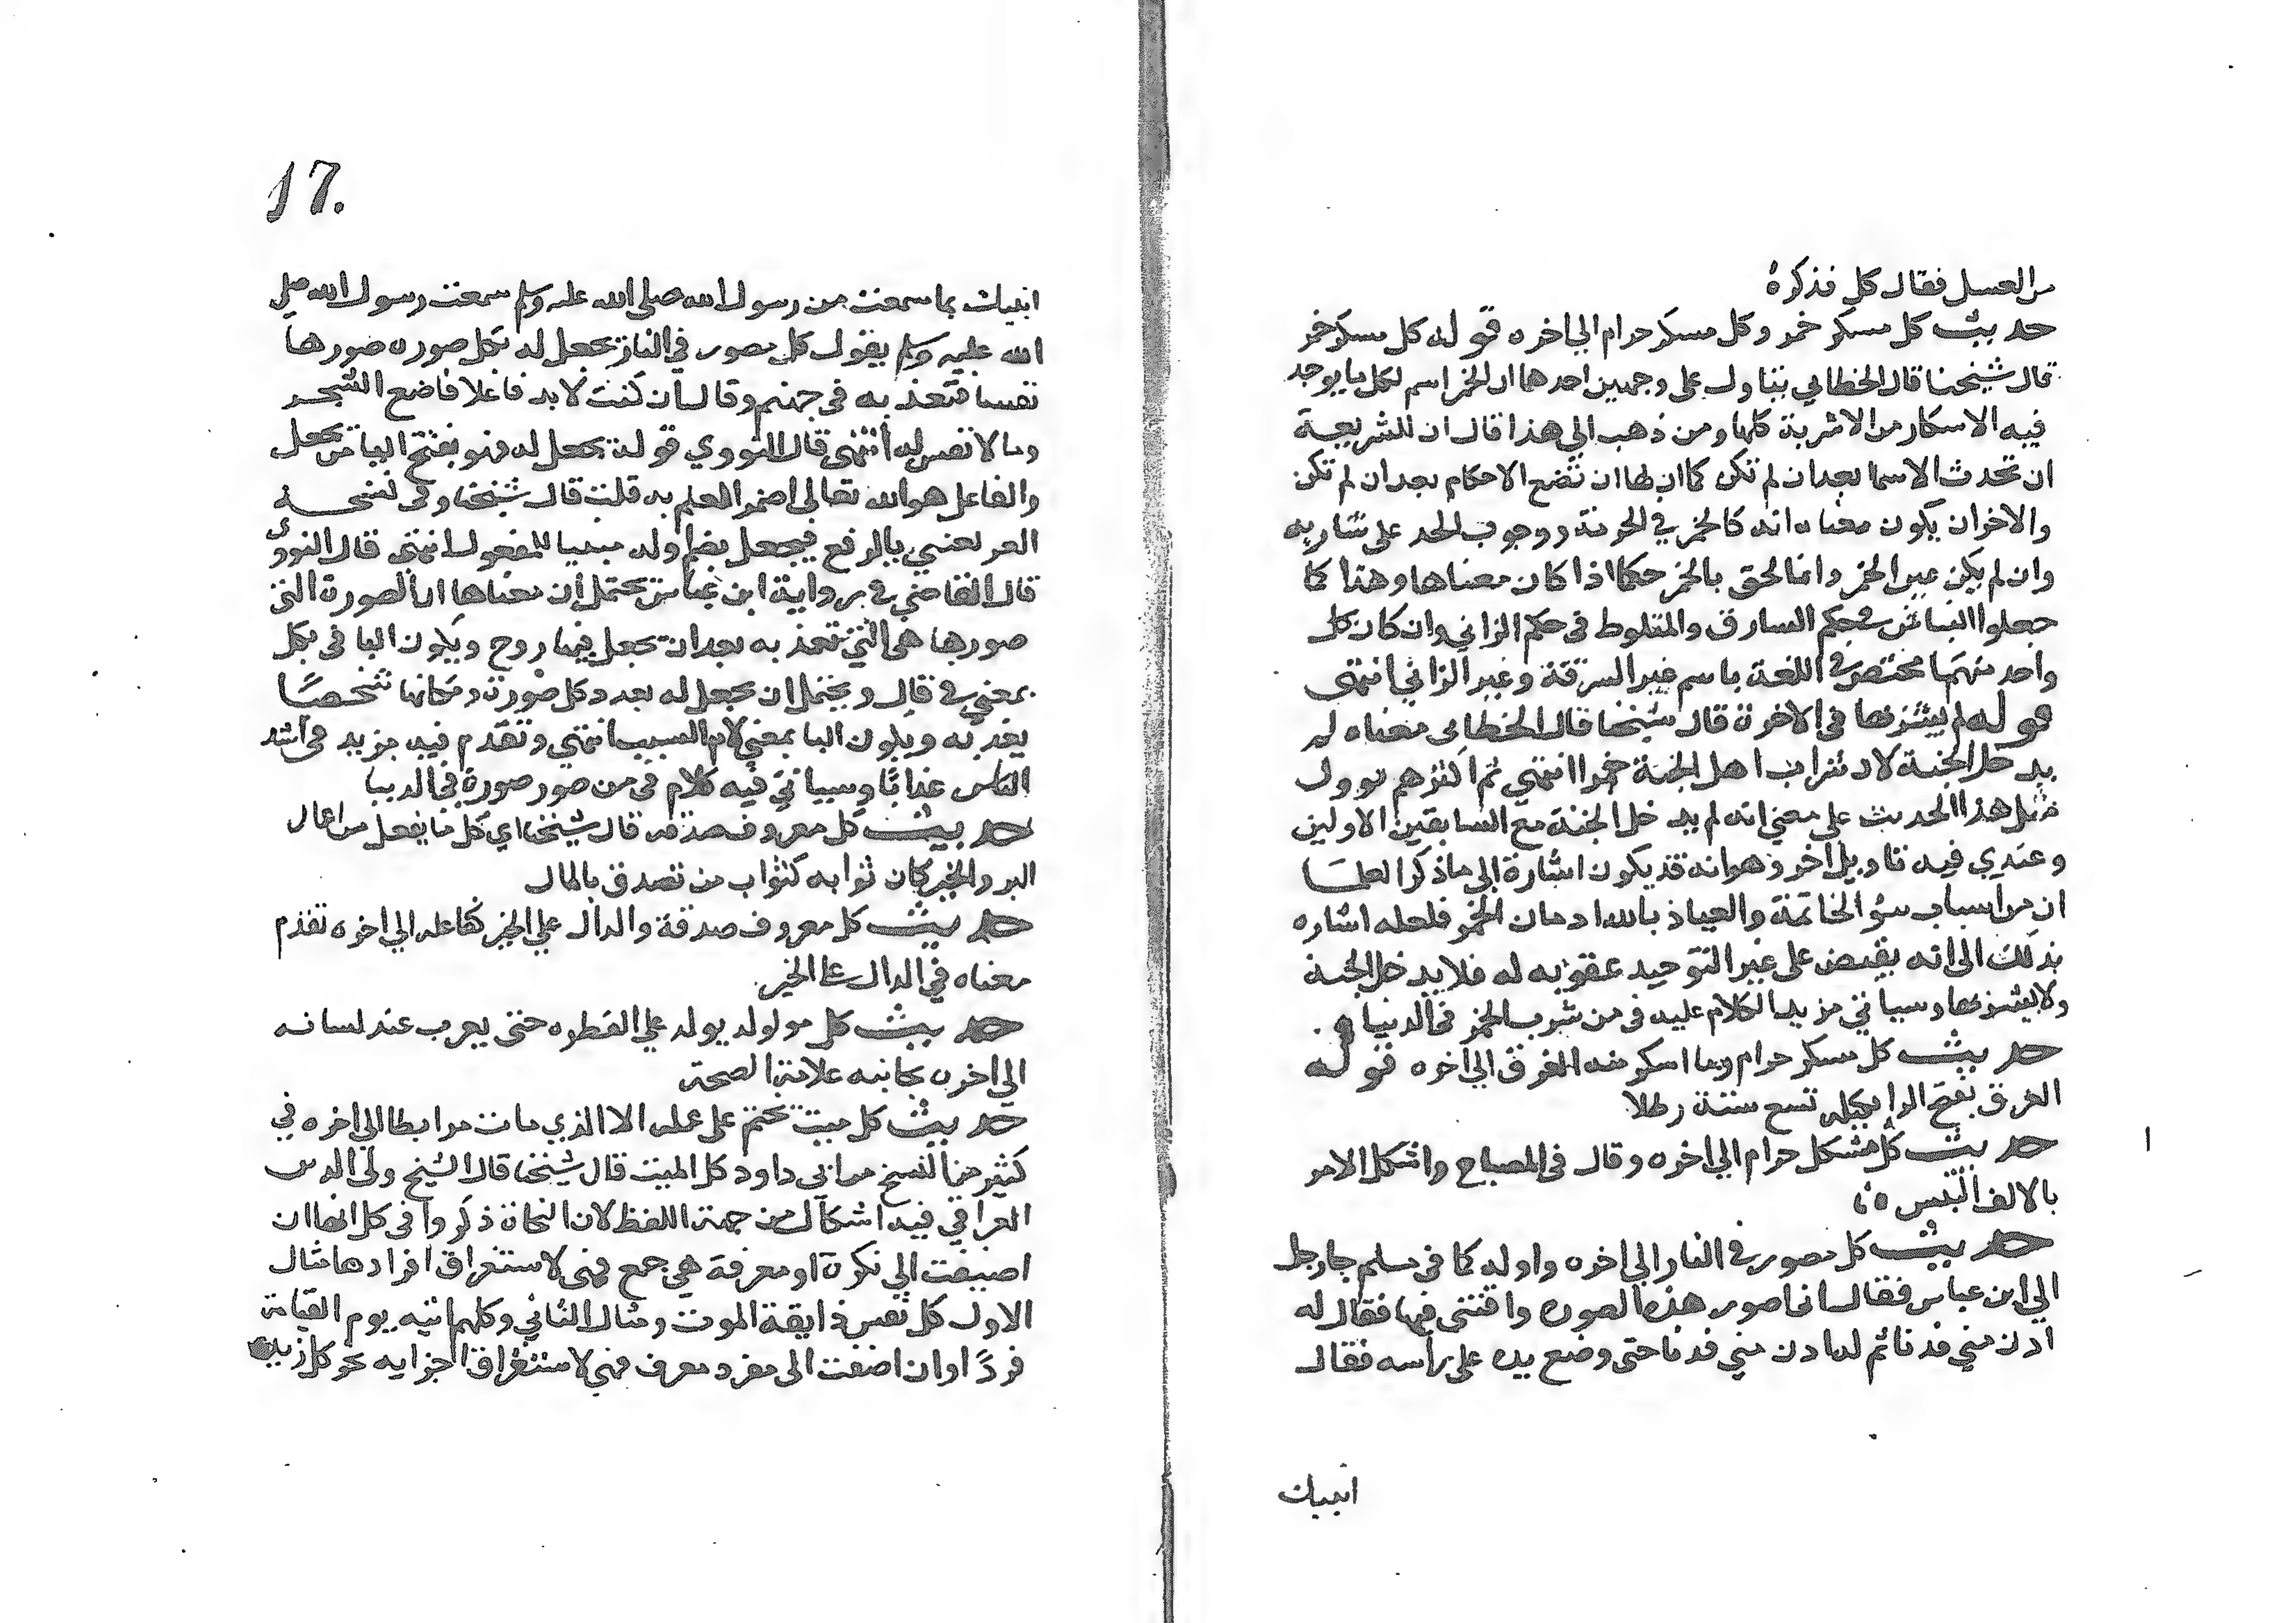 من العسل فقال كل فذكره
حديث كل مسكر خمر وكل مسكر حرام الي اخره قوله كل مسكر خمر
قال شيخنا قال الخطابي يتناول على وجهين احدهما ان الخمر اسم لكل ما يوجد
فيه الاسكار من الاشربة كلها ومن ذهب الي هذا قال ان للشريعة
ان تحدث الاسما بعد ان لم تكن كما ان لها ان تضع الاحكام بعد ان لم تكن
والاخر ان يكون معناه انه كالخمر في الحرمة ووجوب الحد على شاربه
وان لم يكن عين الخمر وانما الحق بالخمر حكما اذا كان معناها وهذا كما
جعلوا النباش في حكم السارق والمتلوط في حكم الزاني وان كان كل
واحد منهما مختص في اللغة باسم غير السرقة وغير الزاني انتهى
قوله لم يشربها في الاخرة قال شيخنا قال الخطابى معناه لم
يدخل الجنة لان شراب اهل الجنة خمر انتهى ثم اكثرهم يوول
مثل هذا الحديث على معني انه لم يدخل الجنة مع السابقين الاولين
وعندي فيه تاويل اخر وهو انه قد يكون اشارة الي ما ذكر العلما
ان من اسباب سؤ الخاتمة والعياذ بالله ادمان الخمر فلعله اشاره
بذلك الى انه يقبض على غير التوحيد عقوبه له فلا يدخل الجنة
ولا يشربها وسياتي مزيد الكلام عليه في من شرب الخمر في الدنيا
حديث كل مسكر حرام وما اسكر منه الفرق الي اخره قوله
الفرق بفتح الرا مكيله تسع ستة رطلا
حديث كل مشكل حرام الي اخره وقال في المصباح واشكل الامر
بالالف التبس
حديث كل مصور في النار الي اخره واوله كما في مسلم جا رجل
الي ابن عباس فقال انما صور هذه الصوره وافتنى فيها فقال له
ادن مني فدنا ثم لما دن مني فدنا حتى وضع يده على راسه فقال
انبيك
17.
انبيك بما سمعت من رسول الله صلى الله عليه وسلم سمعت رسول الله صلى
الله عليه وسلم يقول كل مصور في النار يجعل له بكل صوره صورها
نفسا فتعذبه في جهنم وقال ان كنت لابد فاعلا فاضع الشجر
وما لا نفس له انتهى قال النووي قوله يجعل له فهو بفتح اليا من يجعل
والفاعل هو الله تعالى اضمر للعلم به قلت قال شيخنا وفي نسخة
العر يعني بالرفع فيجعل بضم اوله مبنيا للمفعول انتهى قال النووى
قال القاضي في رواية ابن عباس يحتمل ان معناها ان الصورة التي
صورها هي التي تعذبه بعد ان تجعل فيها روح ويكون البا في بكل
بمعني في قال ويحتمل ان يجعل له بعدد كل صورة ومكانها شخصا
يعذبه ويكون البا بمعني لام السبب انتهي وتقدم فيه مزيد في اشد
الناس عذابا وسياتي فيه كلام في من صور صورة في الدنيا
حديث كل معروف صدقه قال شيخنا اي كل ما يفعل من اعمال
البر والخير كان ثوابه كثواب من تصدق بالمال
حديث كل معروف صدقة والدال علي الخير كفاعله الي اخره تقدم
معناه في الدال على الخير
حديث كل مولولد يولد علي الفطره حتى يعرب عند لسانه
الي اخره بجانبه علامة الصحة
حديث كل ميت تختم على عمله الا الذي مات مرابطا الي اخره في
كثير من النسخ من ابي داود كل الميت قال شيخنا قال الشيخ ولى الدين
العراقي فيه اشكال من جهة اللفظ لان النحاة ذكروا في كل انها ان
اضيفت الي نكرة او معرفة هي جمع فهى لاستغراق افرادها مثال
الاول كل نفس ذايقة الموت ومثال الثاني وكلهم اتيه يوم القيامة
فردا وان اضفت الى مفرد معرف فهي لاستغراق اجزايه نحو كل زيد